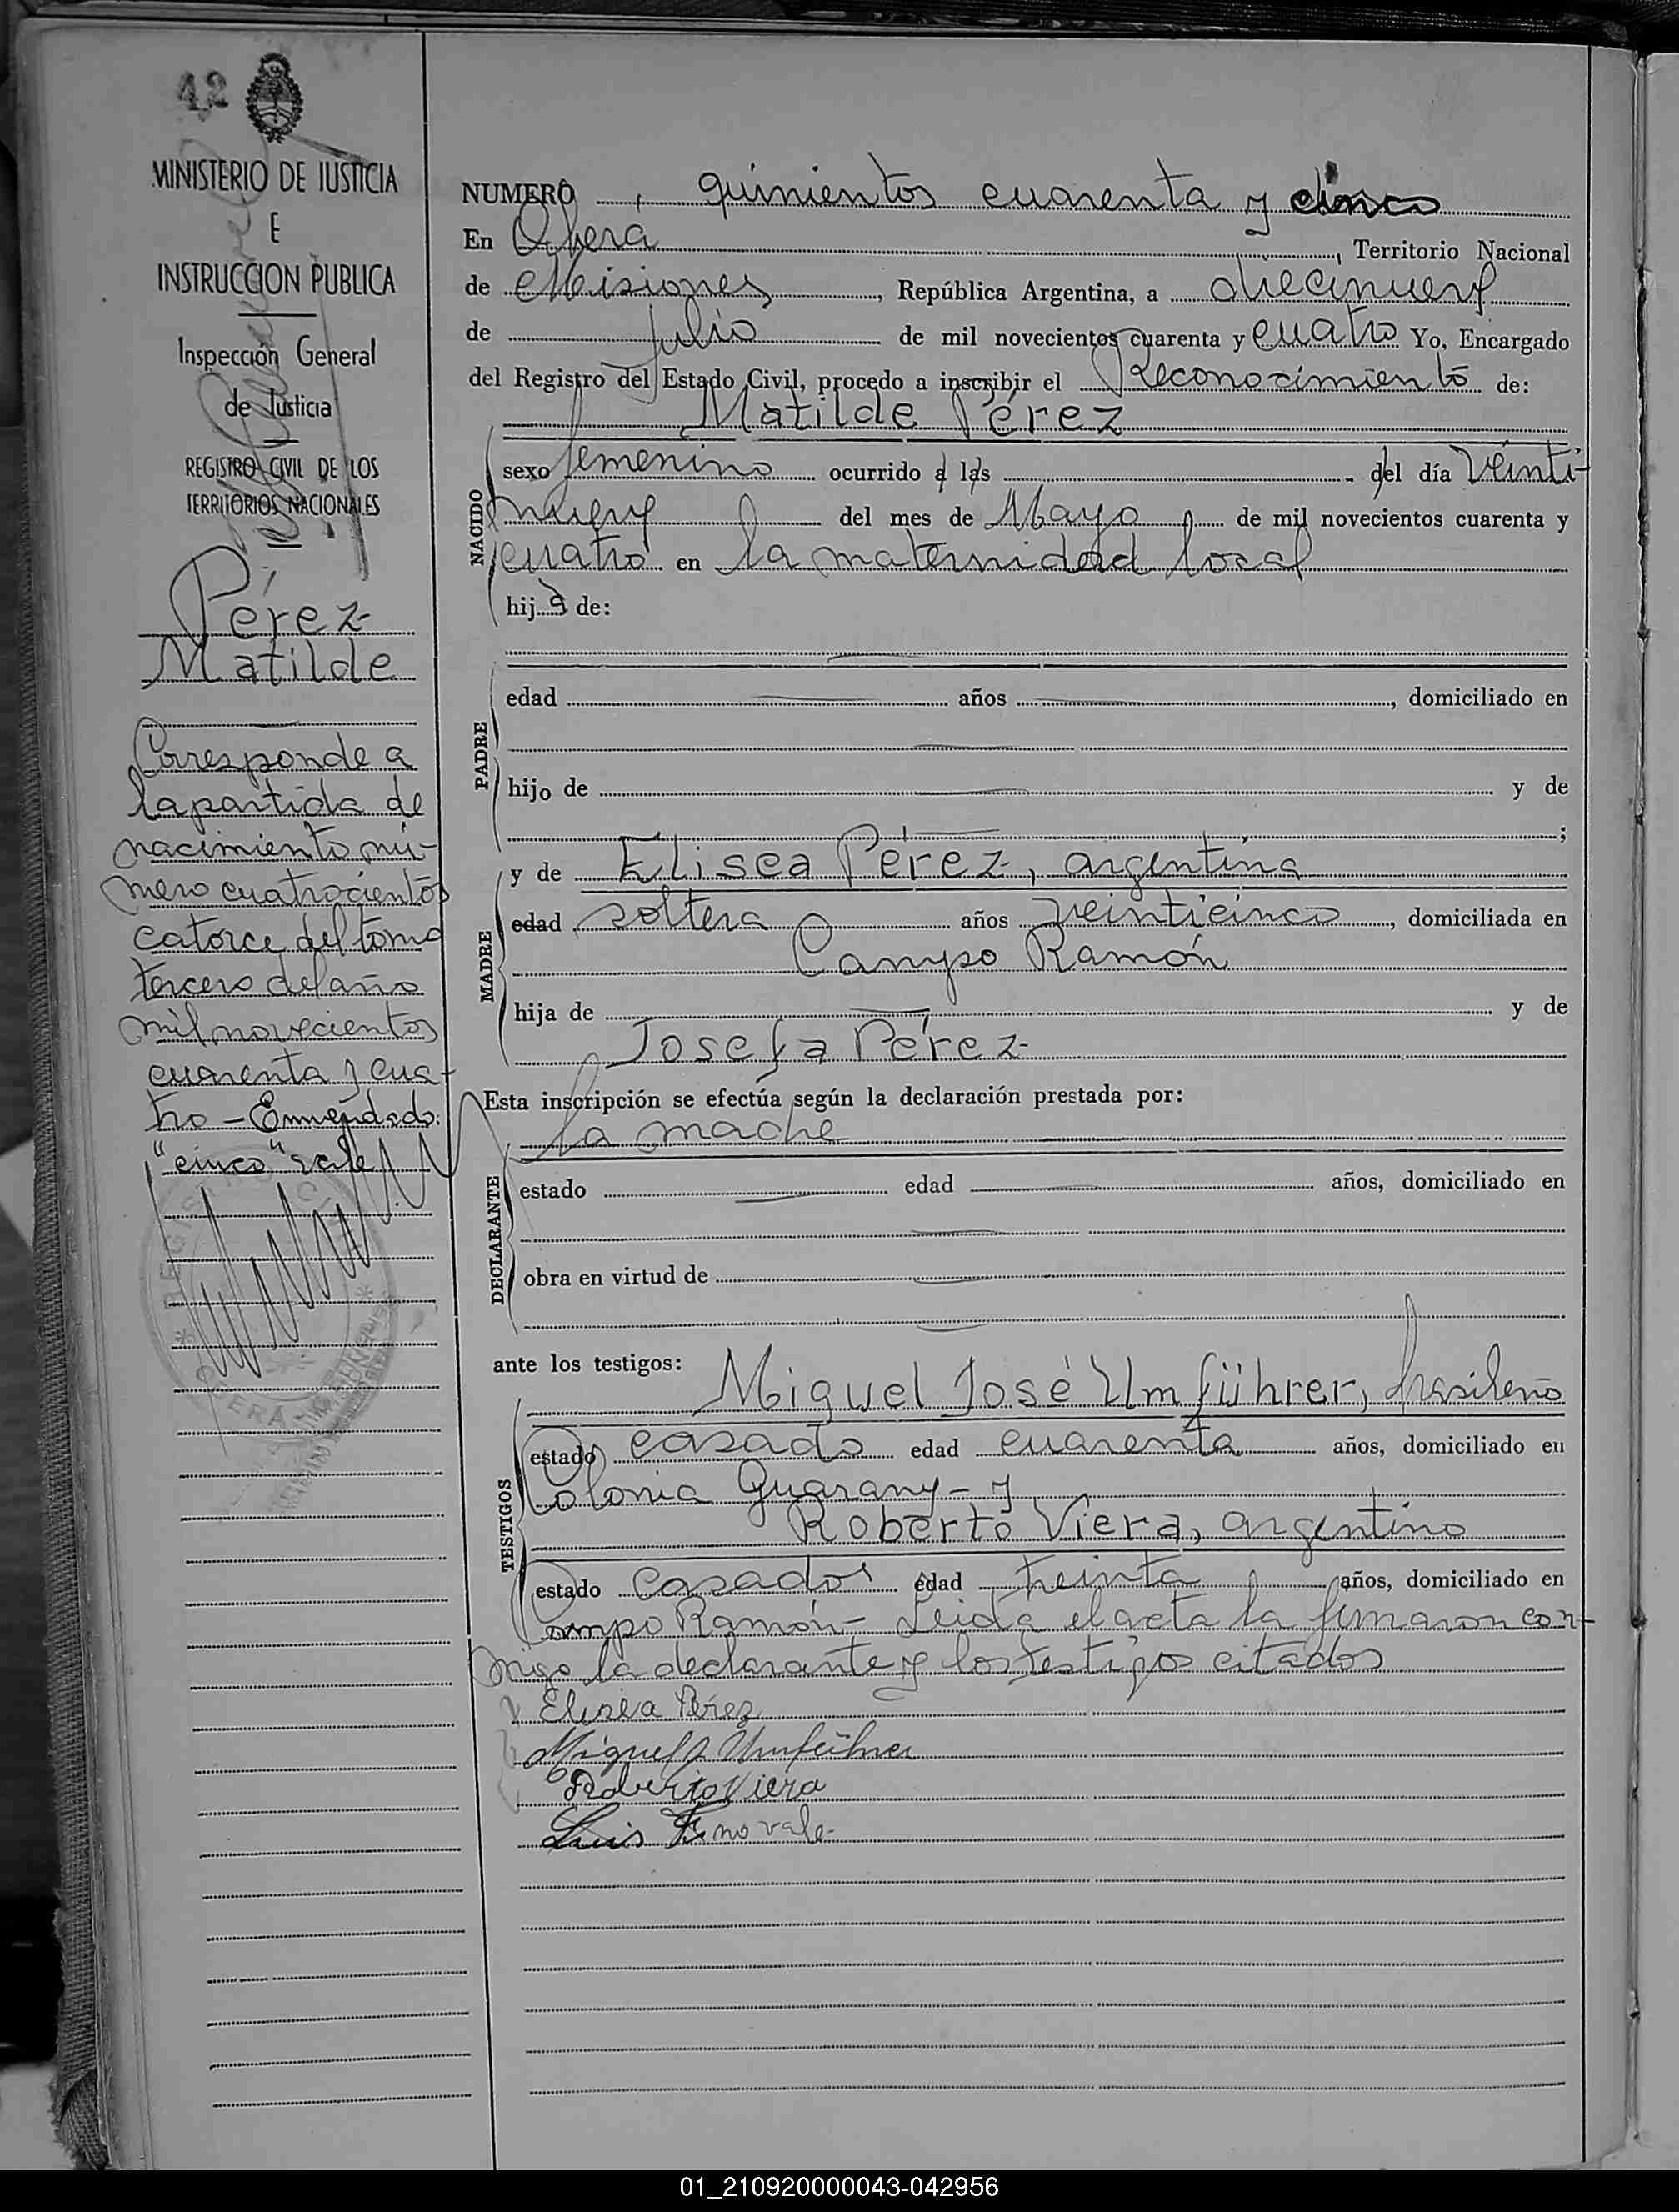 42
MINISTERIO DE JUSTICIA
E
INSTRUCCION PUBLICA
Inspección General
de Justicia
REGISTRO CIVIL DE LOS
TERRITORIOS NACIONALES
Pérez
Matilde
Corresponde a
la partida de
nacimiento nú-
mero cuatrocientos
catorce del tomo
tercero del año
mil novecientos
cuarenta y cua-
tro - Enmendado:
"cinco" vale
NUMERO quinientos cuarenta y cinco
En Oberá, Territorio Nacional
de Misiones, República Argentina, a diecinueve
de julio de mil novecientos cuarenta y cuatro Yo, Encargado
del Registro del Estado Civil, procedo a inscribir el Reconocimiento de:
Matilde Pérez
NACIDO
sexo femenino ocurrido a las del día veinti-
nueve del mes de Mayo de mil novecientos cuarenta y
cuatro en la maternidad local
hija de:
PADRE
edad años, domiciliado en
hijo de y de
;
MADRE
y de Elisea Pérez, argentina
edad soltera años veinticinco, domiciliada en
Campo Ramón
hija de y de
Josefa Pérez
Esta inscripción se efectúa según la declaración prestada por:
la madre
DECLARANTE
estado edad años, domiciliado en
obra en virtud de
ante los testigos:
Miguel José Umführer, brasileño
TESTIGOS
estado casado edad cuarenta años, domiciliado en
Colonia Guarany - y
Roberto Viera, argentino
estado casado edad treinta años, domiciliado en
Campo Ramón - Leida el acta la firmaron con-
migo la declarante y los testigos citados
Elisea Pérez
Miguel J Umführer
Roberto Viera
Luis F. no vale-
01_210920000043-042956